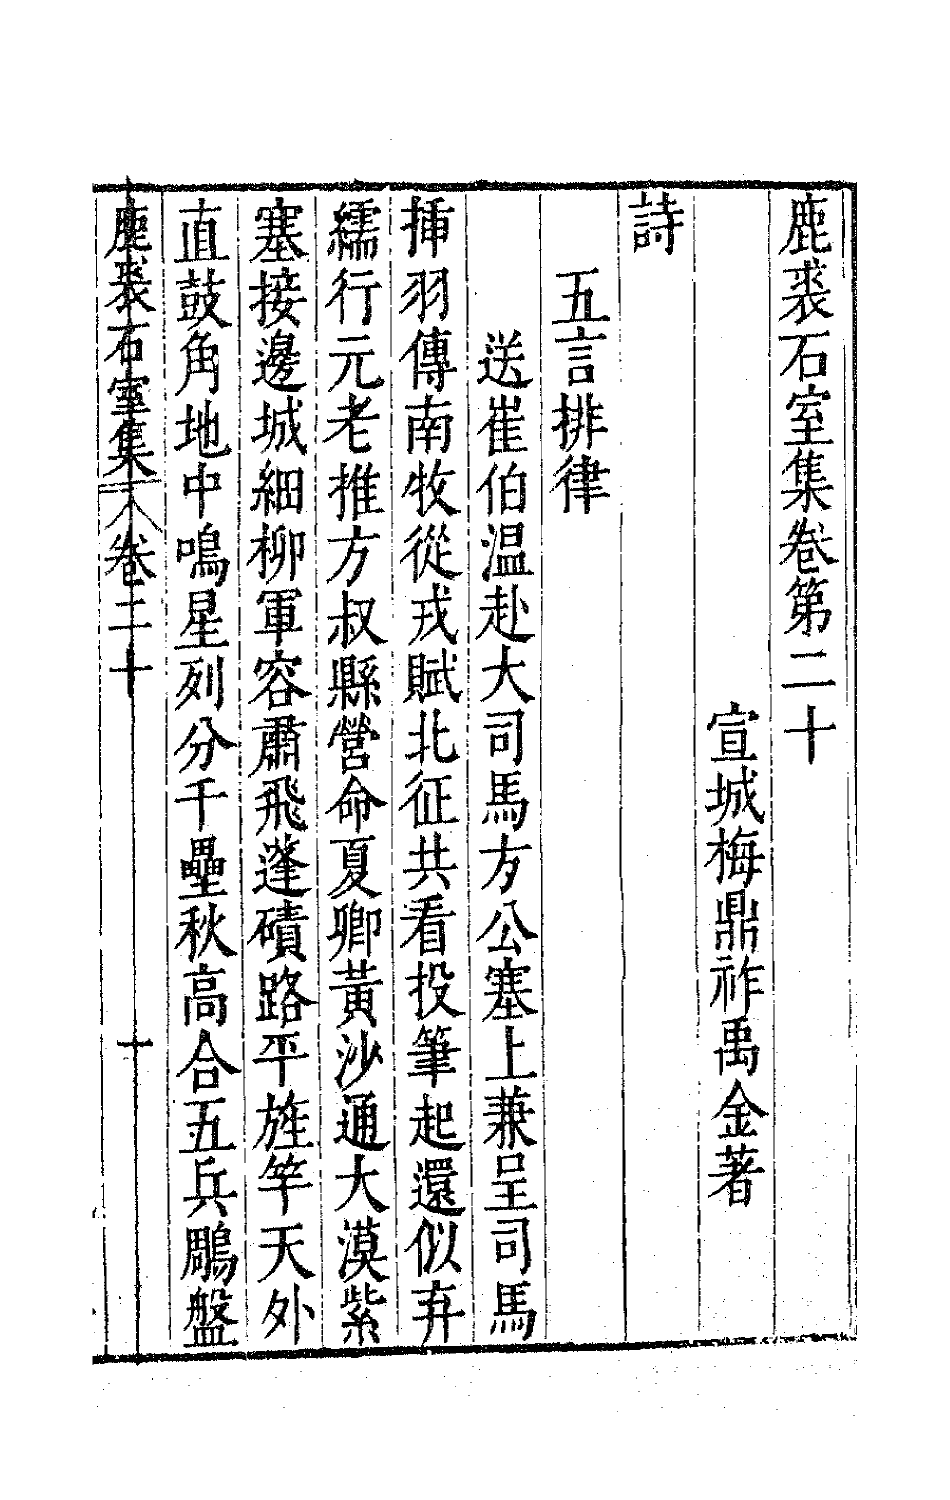 鹿裘石室集卷第二十
宣城梅鼎祚禹金著
詩
五言排律
送崔伯温赴大司馬方公塞上兼呈司馬
揷羽傳南牧從戎賦北征共看投筆起還似弃
繻行元老推方叔縣營命夏卿黃沙通大漠紫
塞接邊城細柳軍容肅飛蓬磧路平旌竿天外
直鼓角地中鳴星列分千壘秋高合五兵鵰盤
鹿裘石室集 卷二十 十